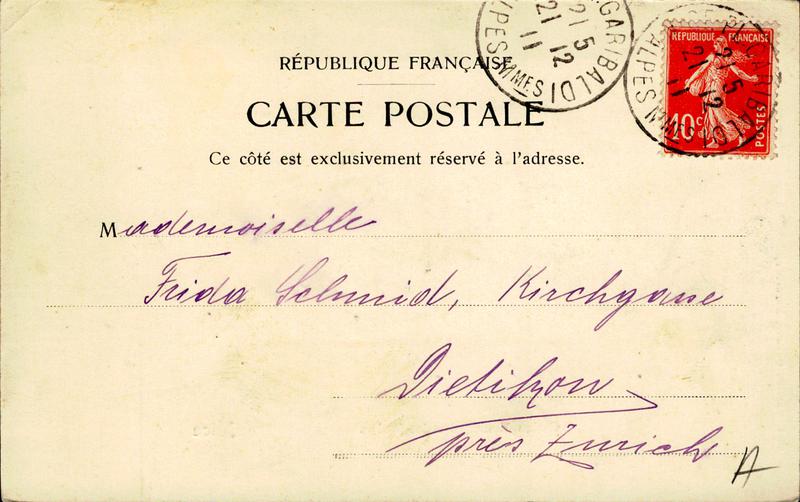 RÉPUBLIQUE FRANÇAISE
CARTE POSTALE
Ce côté est exclusivement réservé à l'adresse.
GARIBALDI
21 5
21 12
11
ALPES MMES
RÉPUBLIQUE FRANÇAISE
10c
POSTES
GARIBALDI
21 5
21 12
11
ALPES MMES
Mademoiselle
Frida Schmid, Kirchgasse
Dietikon
près Zurich
A